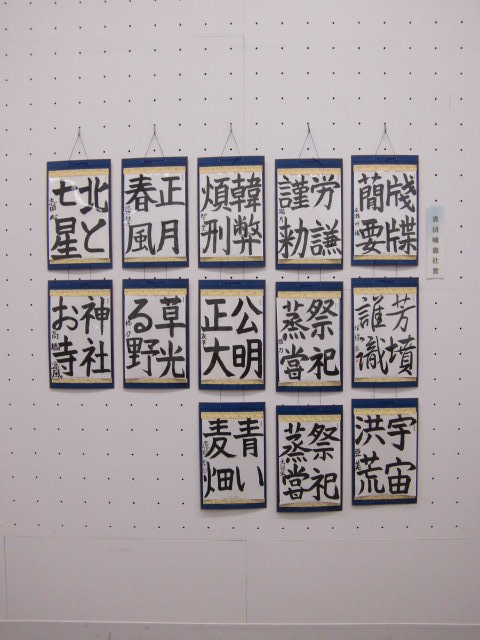 牋牒
簡要
労謙
謹勅
韓弊
煩刑
正月
春風
北と
七星
芳墳
誰識
祭祀
蒸嘗
公明
正大
草光
る野
神社
お寺
宇宙
洪荒
祭祀
蒸嘗
青い
麦畑